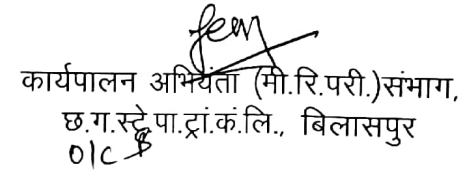 कार्यपालन अभियंता (मी.रि.परी.)संभाग,
छ.ग.स्टे.पा.ट्रां.कं.लि., बिलासपुर
O/C